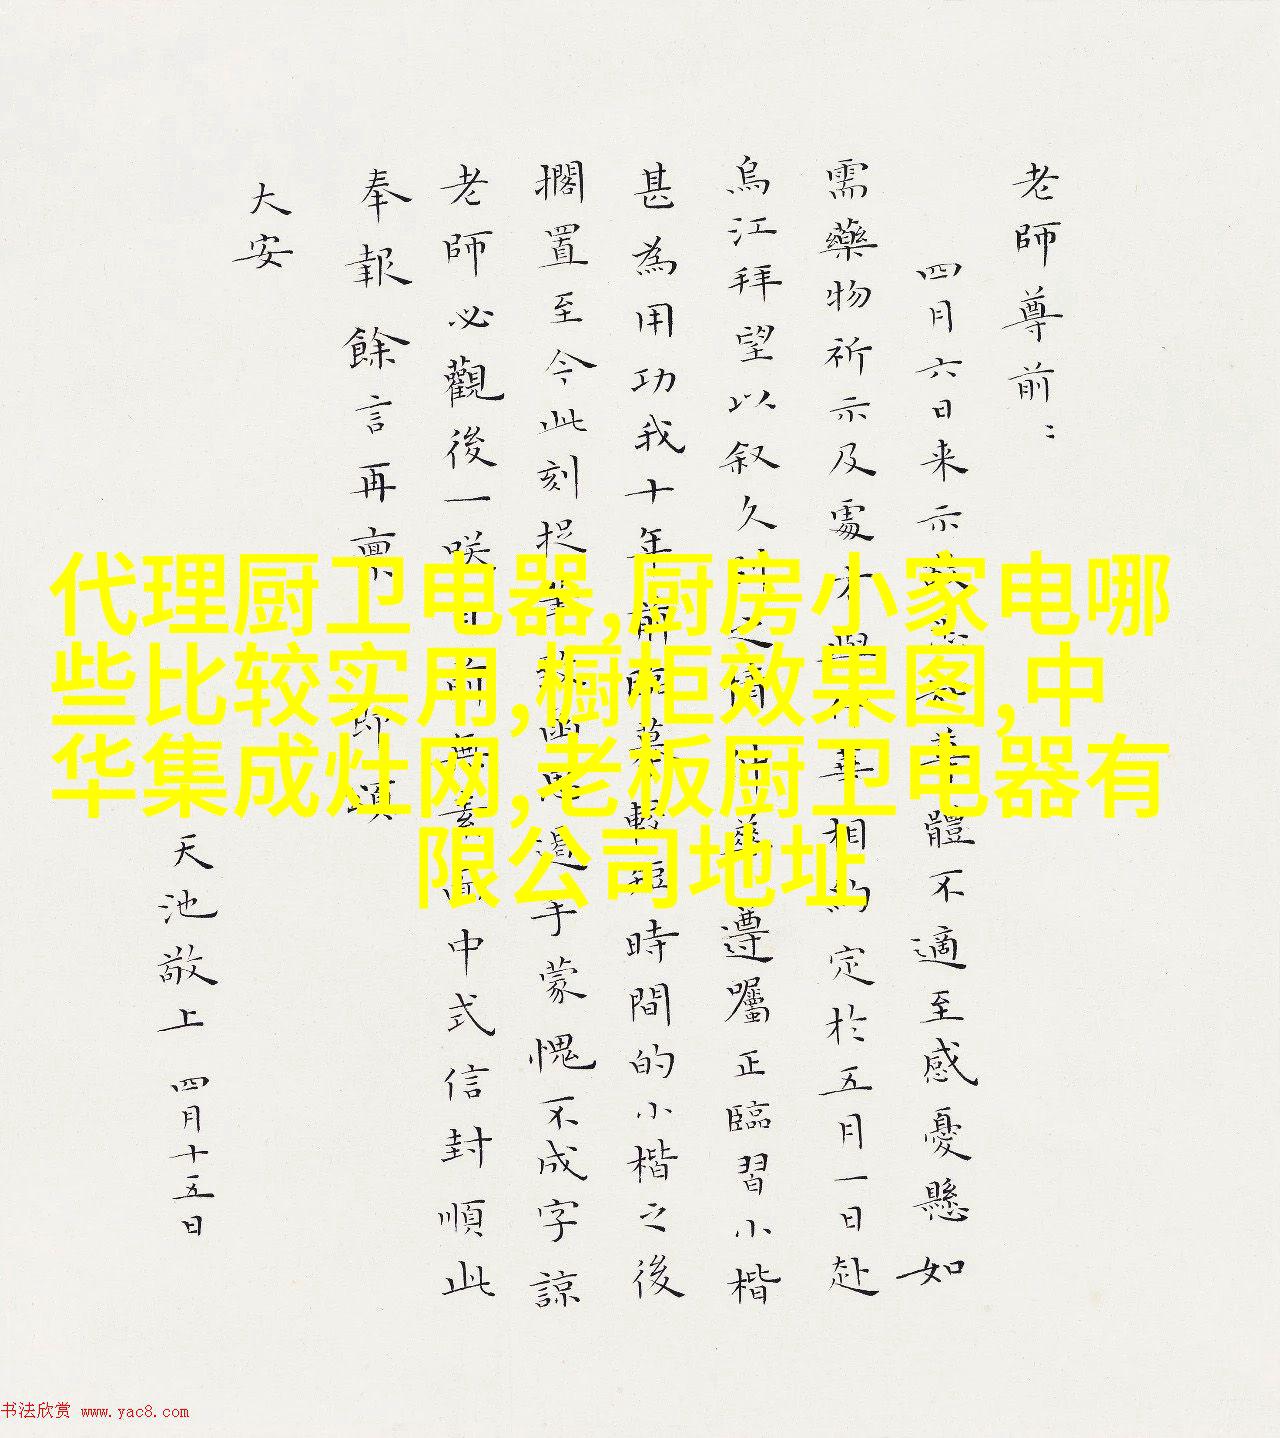 老師尊前：
四月六日来示
體不適至感憂懸如
需藥物祈示及處
相約定於五月一日赴
烏江拜望以叙久
遵囑正臨習小楷
甚為用功我十年前
時間的小楷之後
擱置至今此刻捉
過手蒙愧不成字諒
老師必觀後一咲
中式信封順此
奉報餘言再稟
即頌
大安
天池敬上 四月十五日
代理厨卫电器,厨房小家电哪
些比较实用,橱柜效果图,中
华集成灶网,老板厨卫电器有
限公司地址
书法欣赏 www.yac8.com